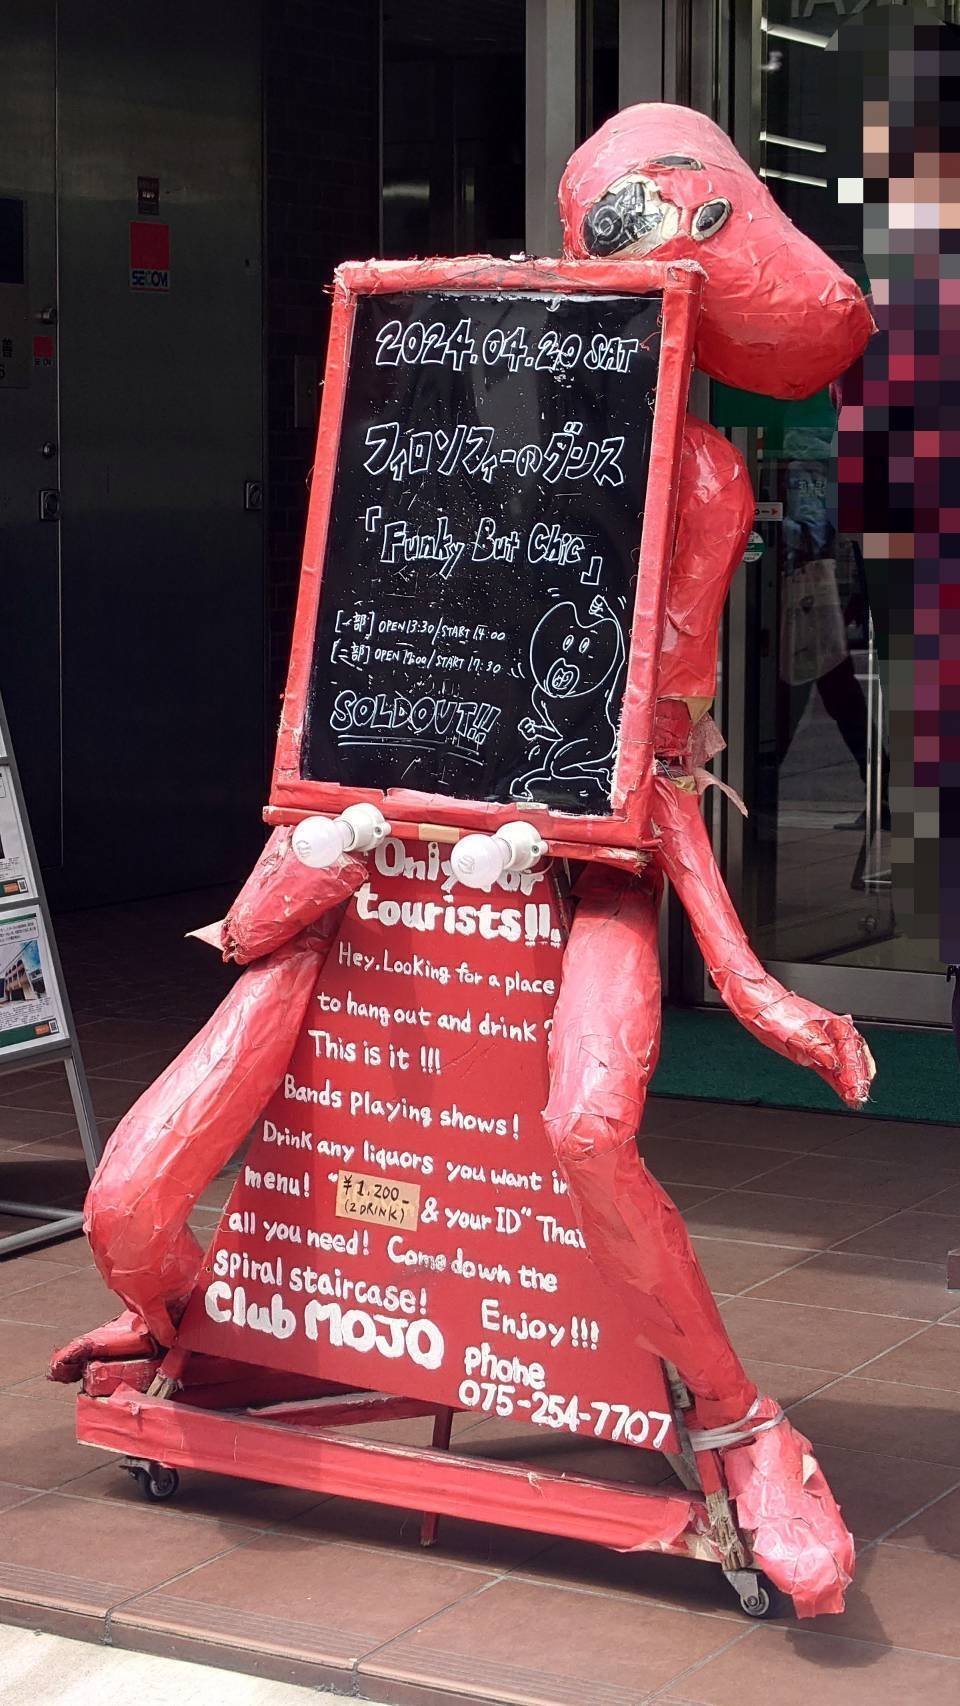 2024.04.20 SAT
フィロソフィーのダンス
「Funky But Chic」
[一部] OPEN 13:30/START 14:00
[二部] OPEN 17:00/START 17:30
SOLDOUT!!
Only for
tourists!!.
Hey, Looking for a place
to hang out and drink?
This is it !!!
Bands playing shows!
Drink any liquors you want in
menu! "¥1,200- (2 DRINK) & your ID" That
all you need! Come down the
spiral staircase!
Enjoy!!!
Club MOJO
phone
075-254-7707
SECOM